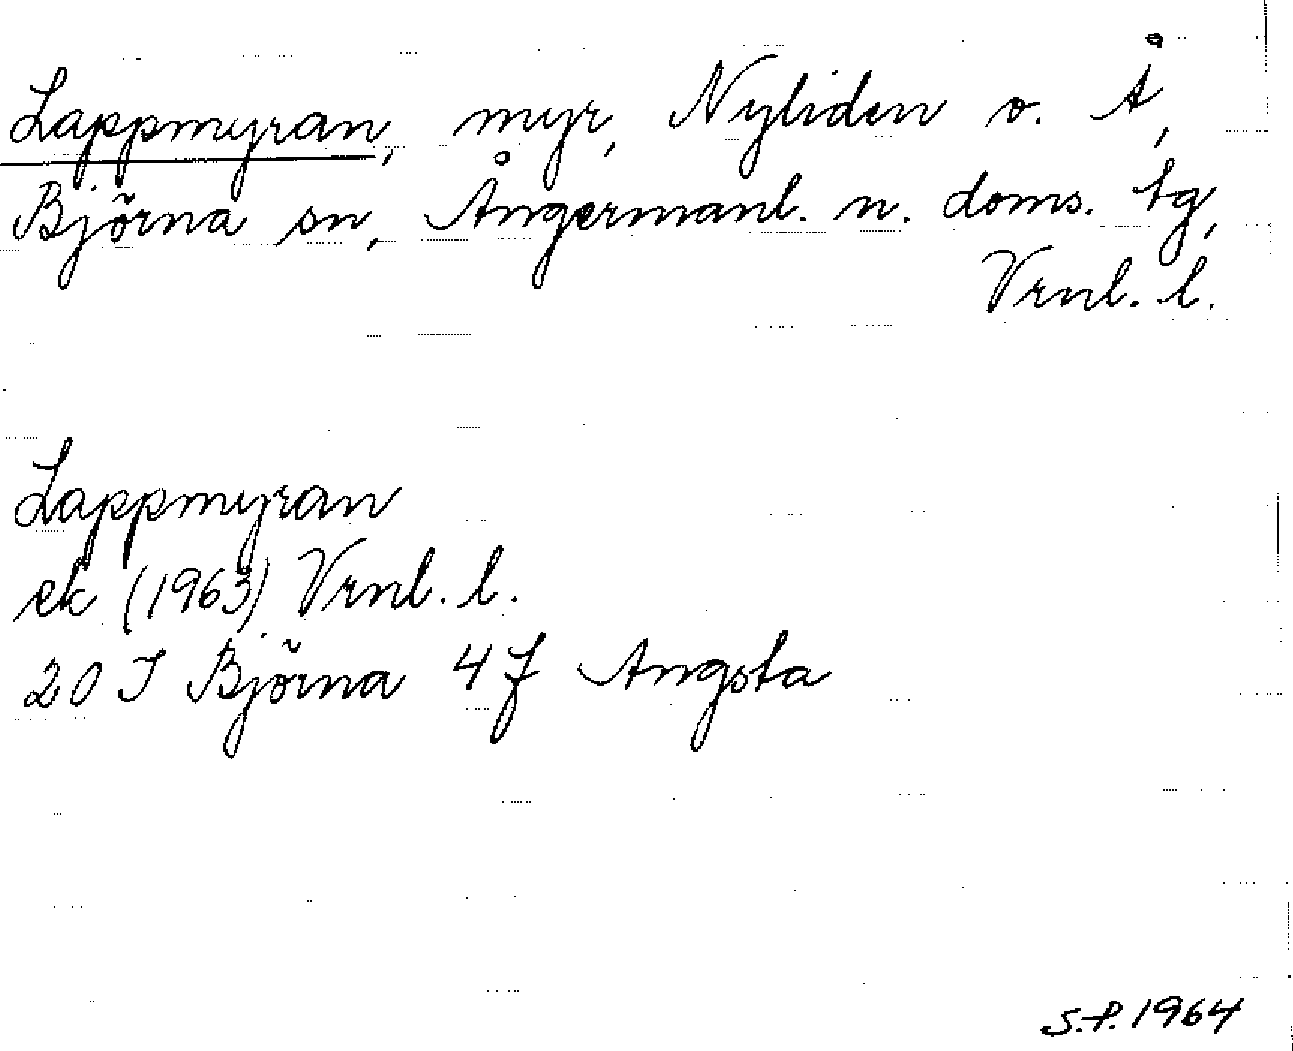 Lappmyran, myr, Nyliden o. Å,
Björna sn, Ångermanl. n. doms. tg,
Vrnl. l.
Lappmyran
ek (1963) Vrnl. l.
20 I Björna 4f Angsta
S.P. 1964